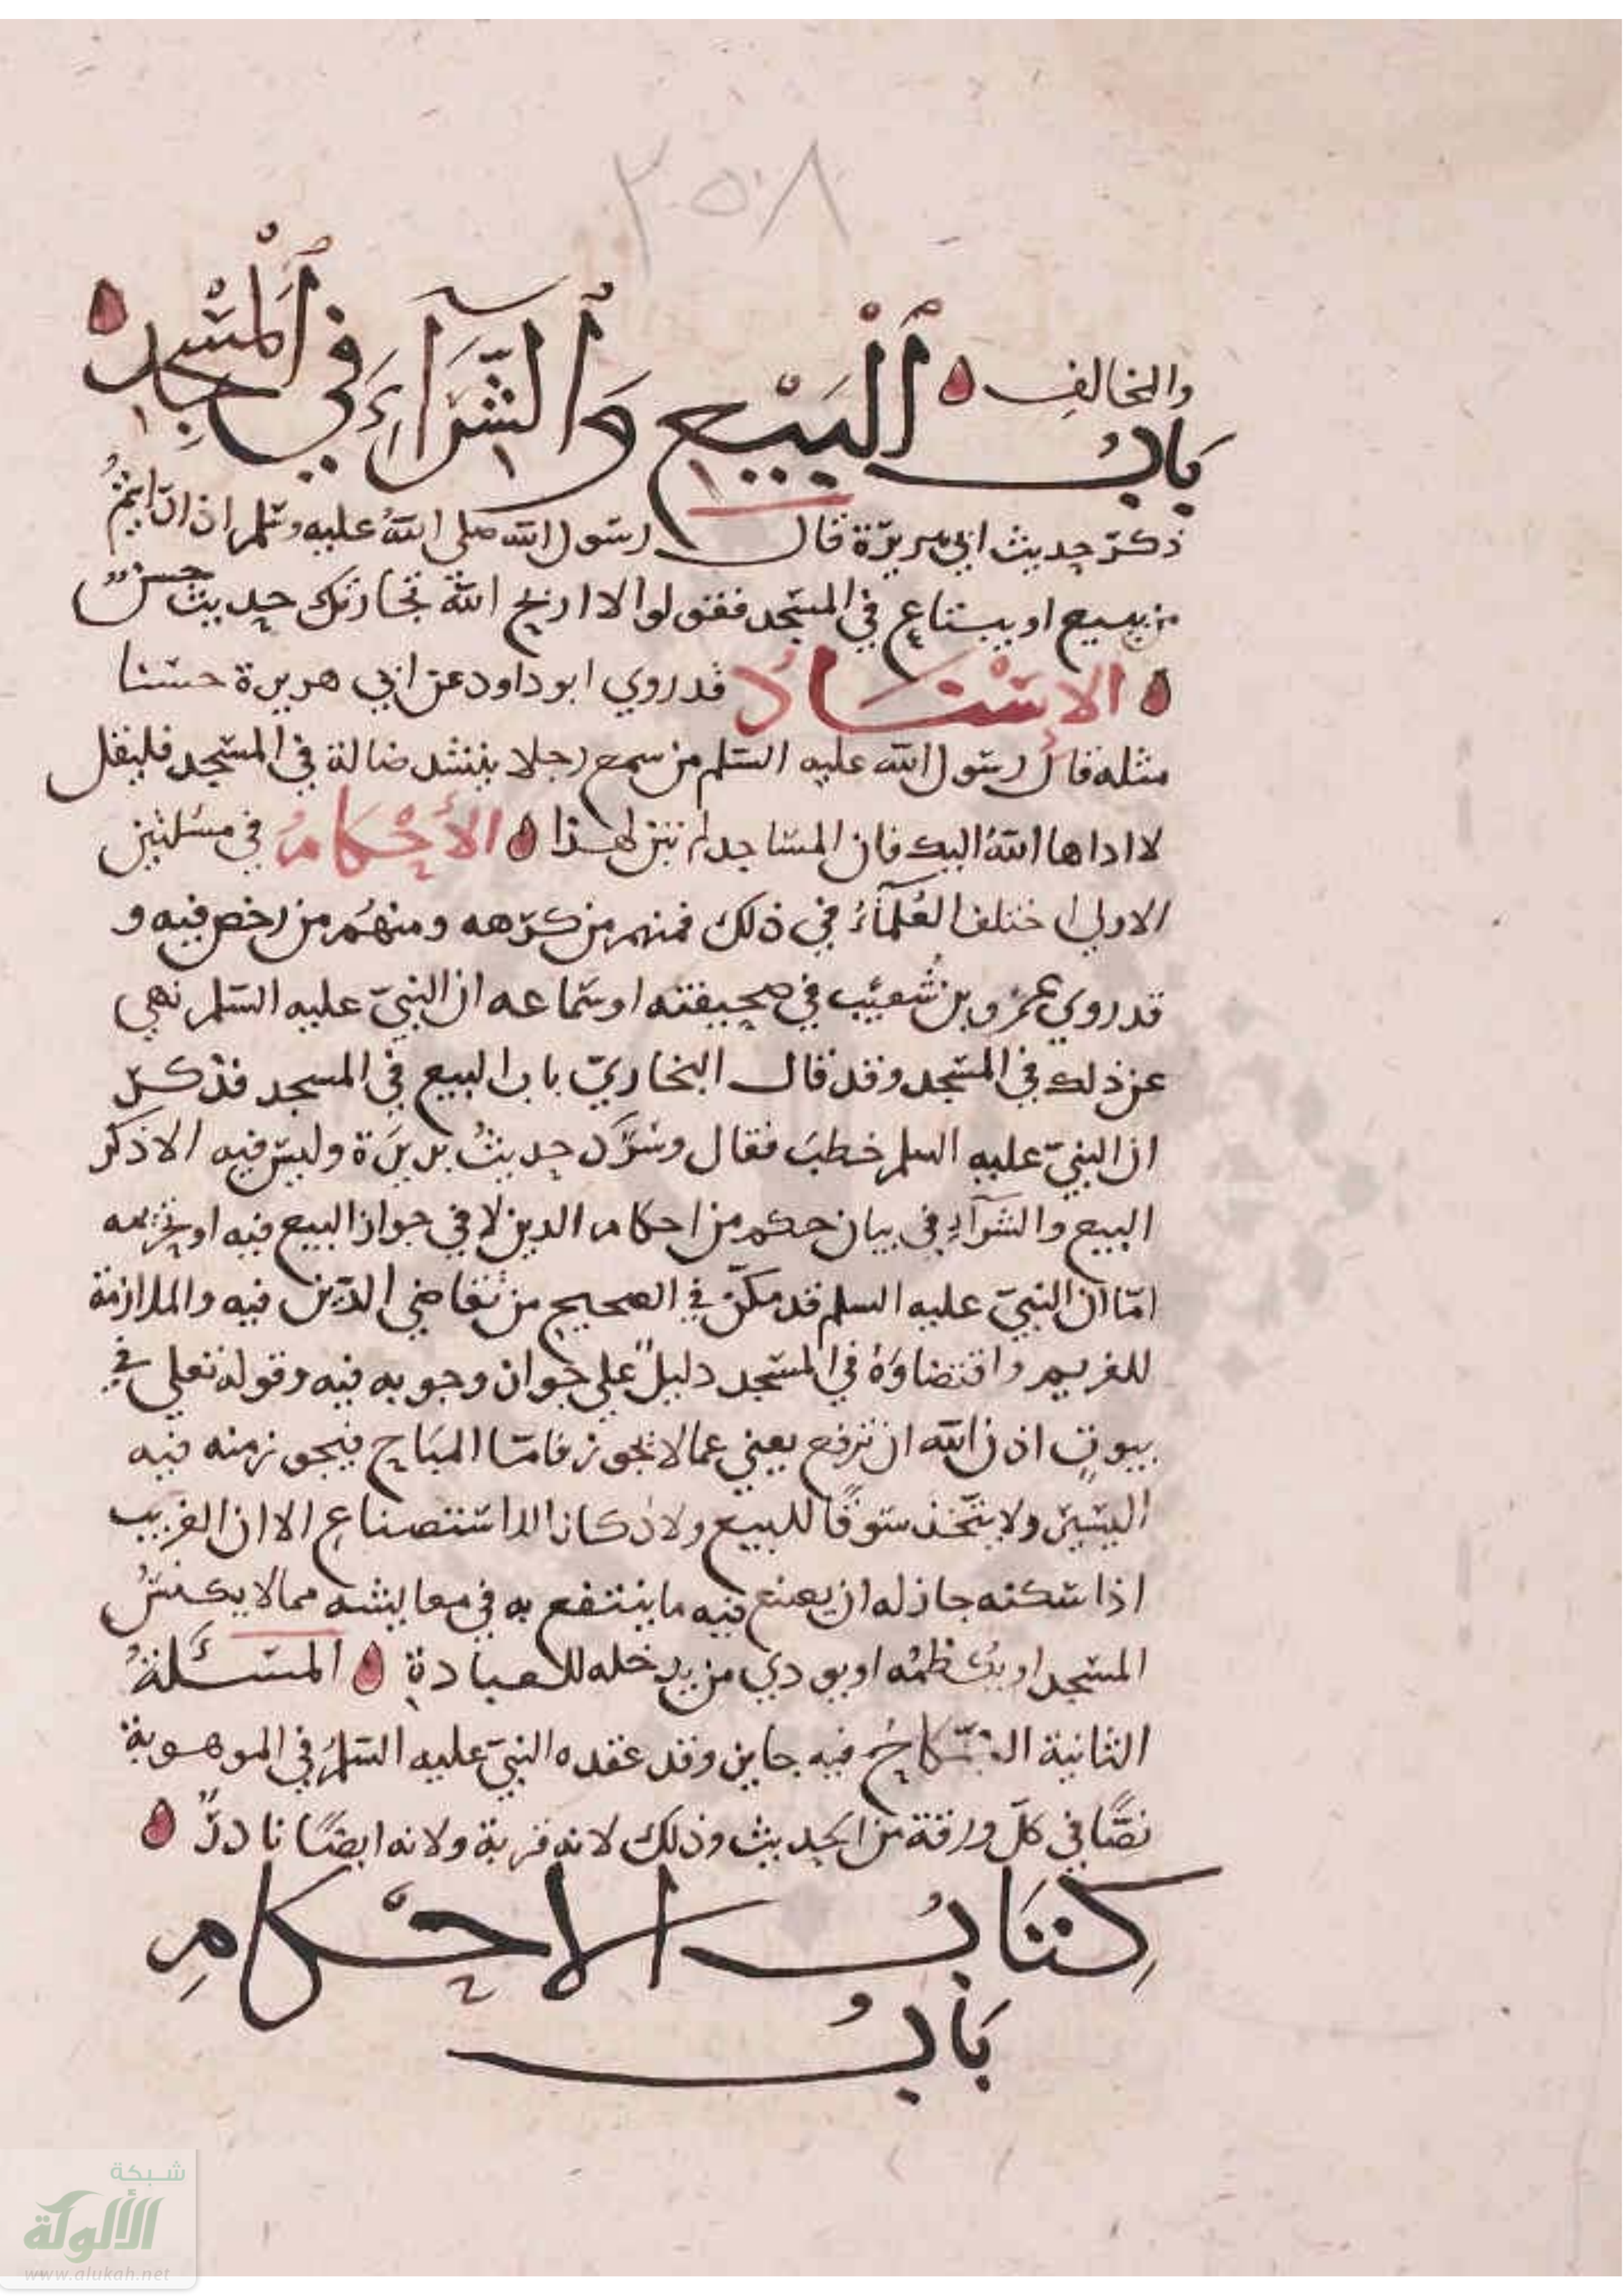 ٢٥٨
والمخالف
بَابُ ٱلْبَيْعِ وَٱلشِّرَآءِ فِي ٱلْمَسْجِدِ
ذكر حديث ابي هريرة قال رسول الله صلى الله عليه وسلم اذا رايتم
من يبيع او يبتاع في المسجد فقولوا لا اربح الله تجارتك حديث حسن
الاسناد قد روي ابو داود عن ابي هريرة حسنا
مثله قال رسول الله عليه السلم من سمع رجلا ينشد ضالة في المسجد فليقل
لا اداها الله اليك فان المساجد لم تبن لهذا الأحكام في مسئلتين
الاولى اختلف العلمآء في ذلك فمنهم من كرهه ومنهم من رخص فيه و
قد روي عمرو بن شعيب في صحيفته او سماعه ان النبي عليه السلم نهى
عن ذلك في المسجد وقد قال البخاري باب البيع في المسجد فذكر
ان النبي عليه السلم خطب فقال وسرد حديث بريرة وليس فيه الا ذكر
البيع والشرآء في بيان حكم من احكام الدين لا في جواز البيع فيه او تحريمه
امّا ان النبي عليه السلم قد مكّن في الصحيح من تقاضي الدين فيه والملازمة
للغريم واقتضاؤه في المسجد دليل على جواز وجوبه فيه وقوله تعلى في
بيوت اذن الله ان ترفع يعني عما لا يجوز فامّا المباح فيجوز منه فيه
اليسير ولا يتخذ سوقًا للبيع ولا دكانا لاستصناع الا ان الغريب
اذا سكنه جاز له ان يصنع فيه ما ينتفع به في معايشه مما لا يكنس
المسجد او او يوذي من يدخله للعبادة المسئلة
الثانية النكاح فيه جايز وقد عقده النبي عليه السلم في الموهوبة
نصًّا في كلّ ورقة من الحديث وذلك لانه قربة ولانه ايضًا نادرٌ
كِتَابُ الاحْكامِ
بَابُ
شبكة
الألوكة
www.alukah.net